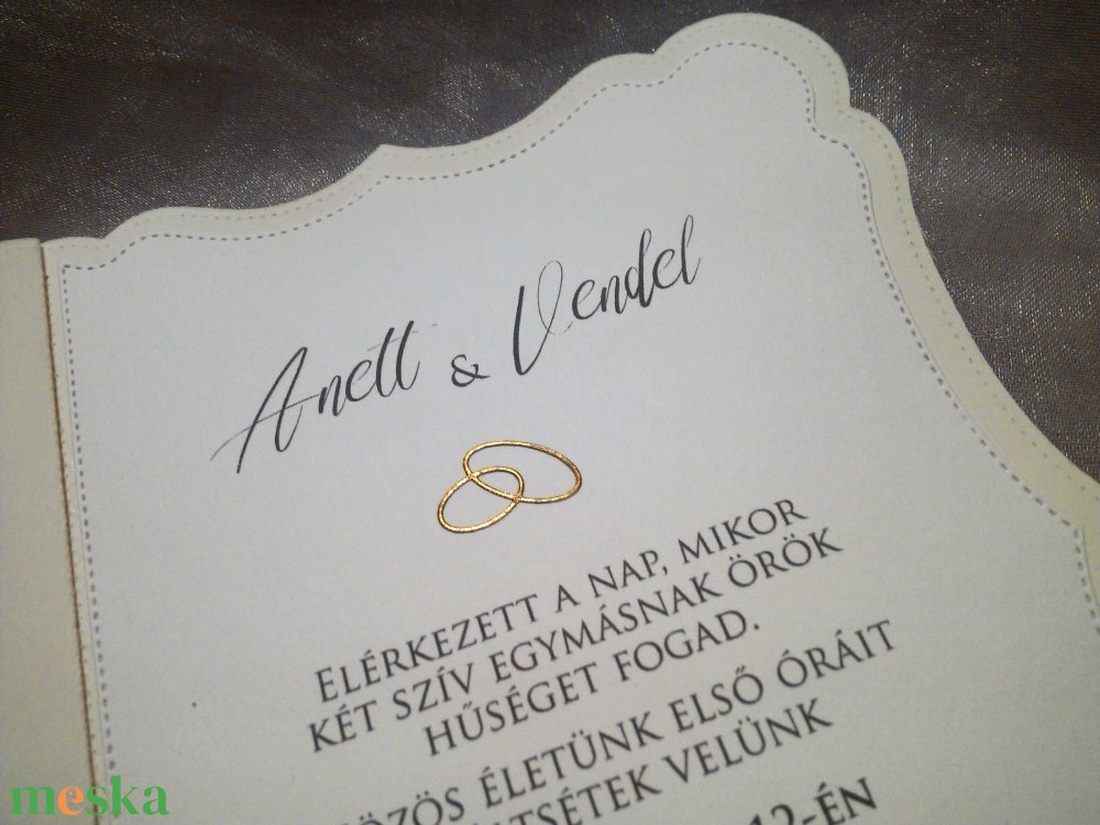 Anett & Vendel
ELÉRKEZETT A NAP, MIKOR
KÉT SZÍV EGYMÁSNAK ÖRÖK
HŰSÉGET FOGAD.
ÖZÖS ÉLETÜNK ELSŐ ÓRÁIT
TSÉTEK VELÜNK
12-ÉN
meska